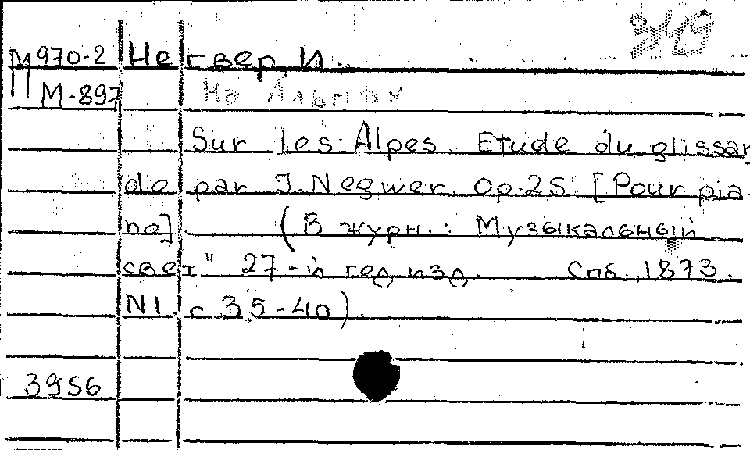 349
М970-2 Негвер, И.
П М-897 На Альпах
Sur les Alpes. Etude du glissan
do par J. Negwer. Op. 25. [Pour pia
no] (В журн.: Музыкальный
свет" 27-й год изд. Спб., 1873.
N1. с 35-40)
3956